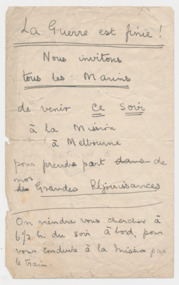 La Guerre est finie !
Nous invitons
tous les Marins
de venir ce soir
à la Mission
à Melbourne
pour prendre part dans
nos
des Grandes Réjouissances
On viendra vous chercher à
6½ h du soir à bord, pour
vous conduire à la Mission par
le train.